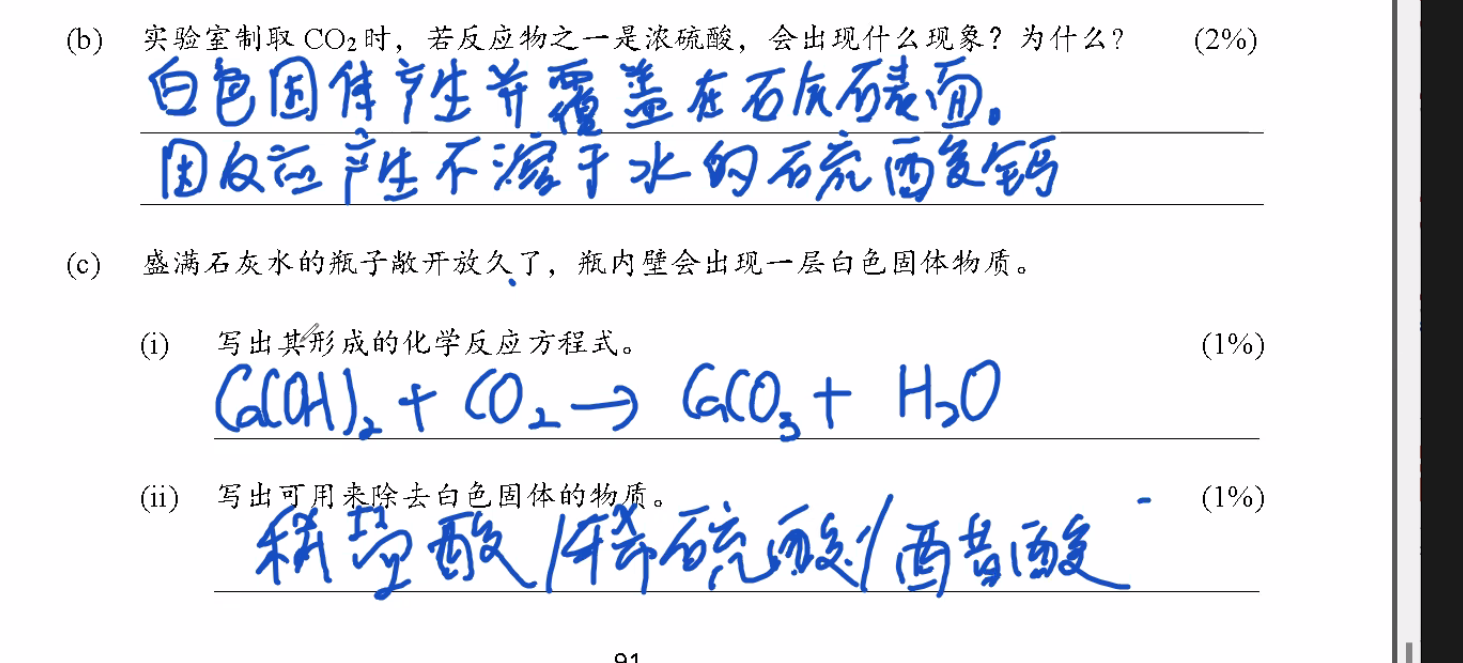 (b) 实验室制取 CO₂ 时，若反应物之一是浓硫酸，会出现什么现象？为什么？ (2%)
白色固体产生并覆盖在石灰石表面。
因反应产生不溶于水的硫酸钙
(c) 盛满石灰水的瓶子敞开放久了，瓶内壁会出现一层白色固体物质。
(i) 写出其形成的化学反应方程式。 (1%)
Ca(OH)₂ + CO₂ → CaCO₃ + H₂O
(ii) 写出可用来除去白色固体的物质。 (1%)
稀盐酸/稀硫酸/醋酸
91